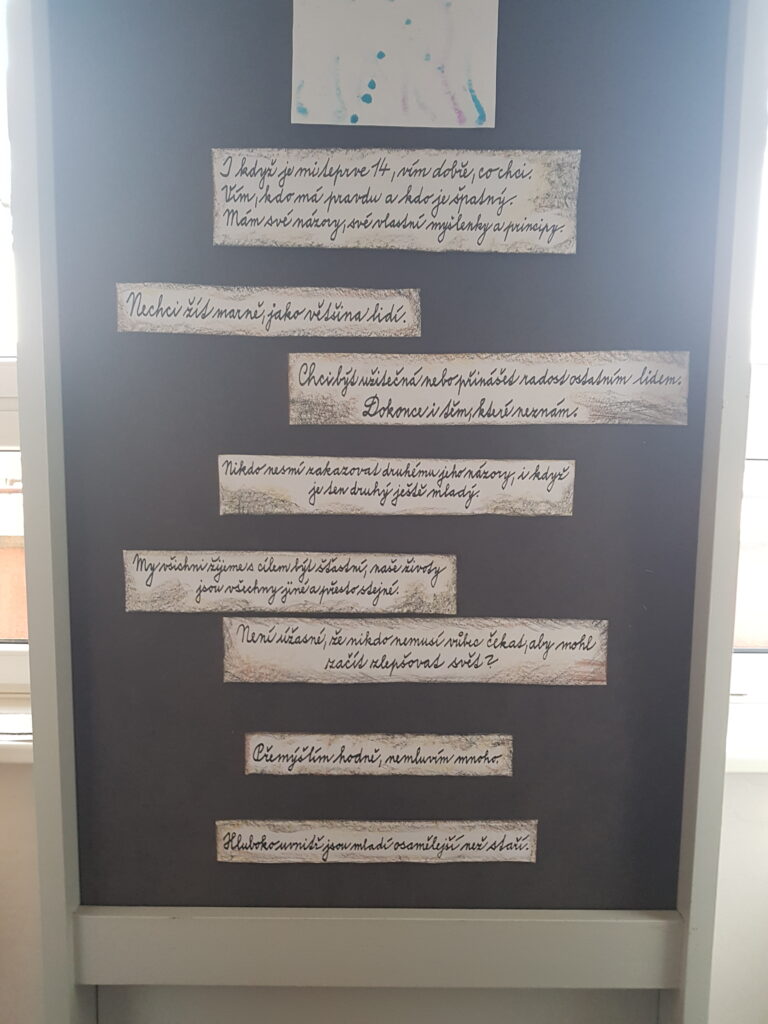 I když je mi teprve 14, vím dobře, co chci.
Vím, kdo má pravdu a kdo je špatný.
Mám své názory, své vlastní myšlenky a principy.
Nechci žít marně, jako většina lidí.
Chci být užitečná nebo přinášet radost ostatním lidem.
Dokonce i těm, které neznám.
Nikdo nesmí zakazovat druhému jeho názory, i když
je ten druhý ještě mladý.
My všichni žijeme s cílem být šťastní, naše životy
jsou všechny jiné a přesto stejné.
Není úžasné, že nikdo nemusí vůbec čekat, aby mohl
začít zlepšovat svět?
Přemýšlím hodně, nemluvím mnoho.
Hluboko uvnitř jsou mladí osamělejší než staří.